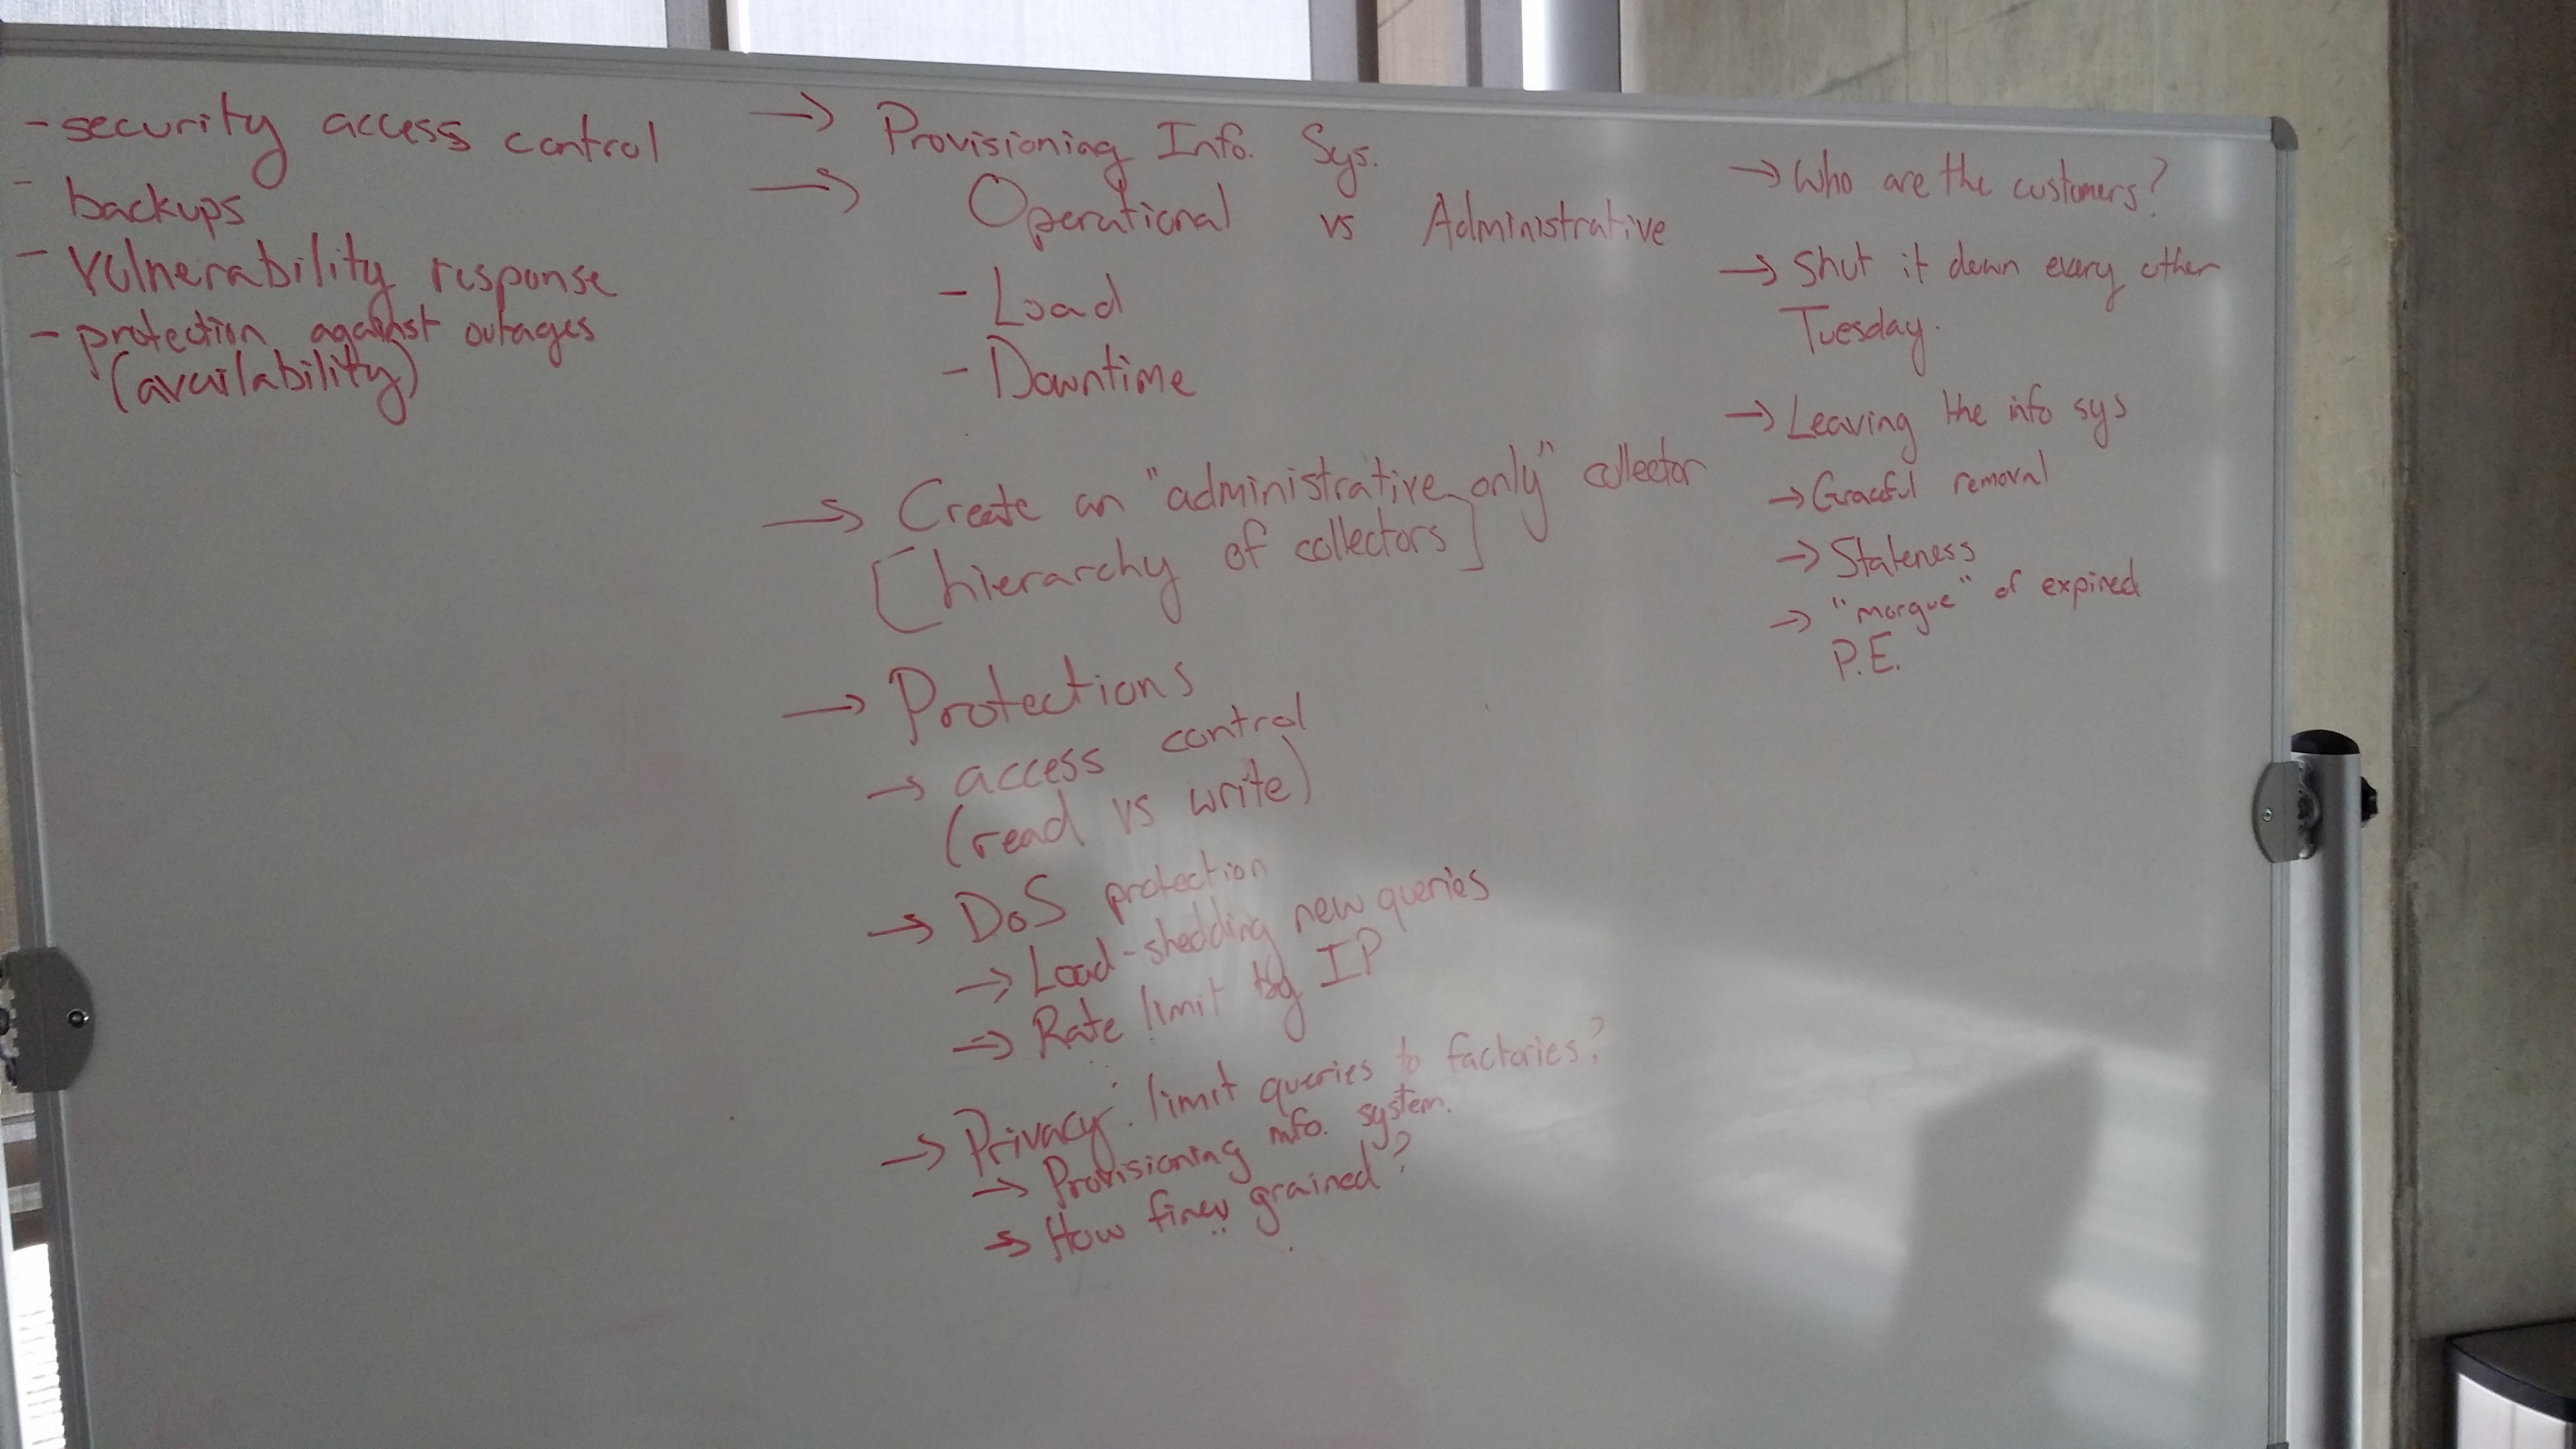 - security access control
- backups
- vulnerability response
- protection against outages
(availability)
→ Provisioning Info. Sys.
→ Operational vs Administrative
- Load
- Downtime
→ Create an "administrative only" collector
[hierarchy of collectors]
→ Protections
→ access control
(read vs write)
→ DoS protection
→ Load-shedding new queries
→ Rate limit by IP
→ Privacy: limit queries to factories?
→ Provisioning info. system.
→ How finely grained?
→ Who are the customers?
→ Shut it down every other
Tuesday.
→ Leaving the info sys
→ Graceful removal
→ Staleness
→ "morgue" of expired
P.E.